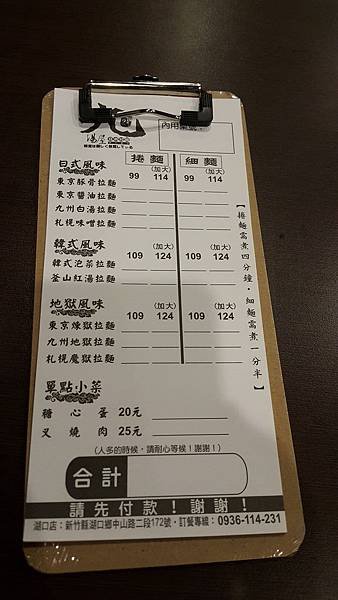 內用桌號
湯屋
日式風味 捲麵 細麵
(加大) (加大)
99 114 99 114
東京豚骨拉麵
東京醬油拉麵
九州白湯拉麵
札幌味噌拉麵
韓式風味 (加大) (加大)
109 124 109 124
韓式泡菜拉麵
釜山紅湯拉麵
地獄風味 (加大) (加大)
109 124 109 124
東京煉獄拉麵
九州地獄拉麵
札幌魔獄拉麵
【捲麵需煮四分鐘,細麵需煮一分半】
單點小菜
糖心蛋 20元
叉燒肉 25元
(人多的時候,請耐心等候!謝謝!)
合計
請先付款!謝謝!
湖口店:新竹縣湖口鄉中山路二段172號・訂餐專線:0936-114-231